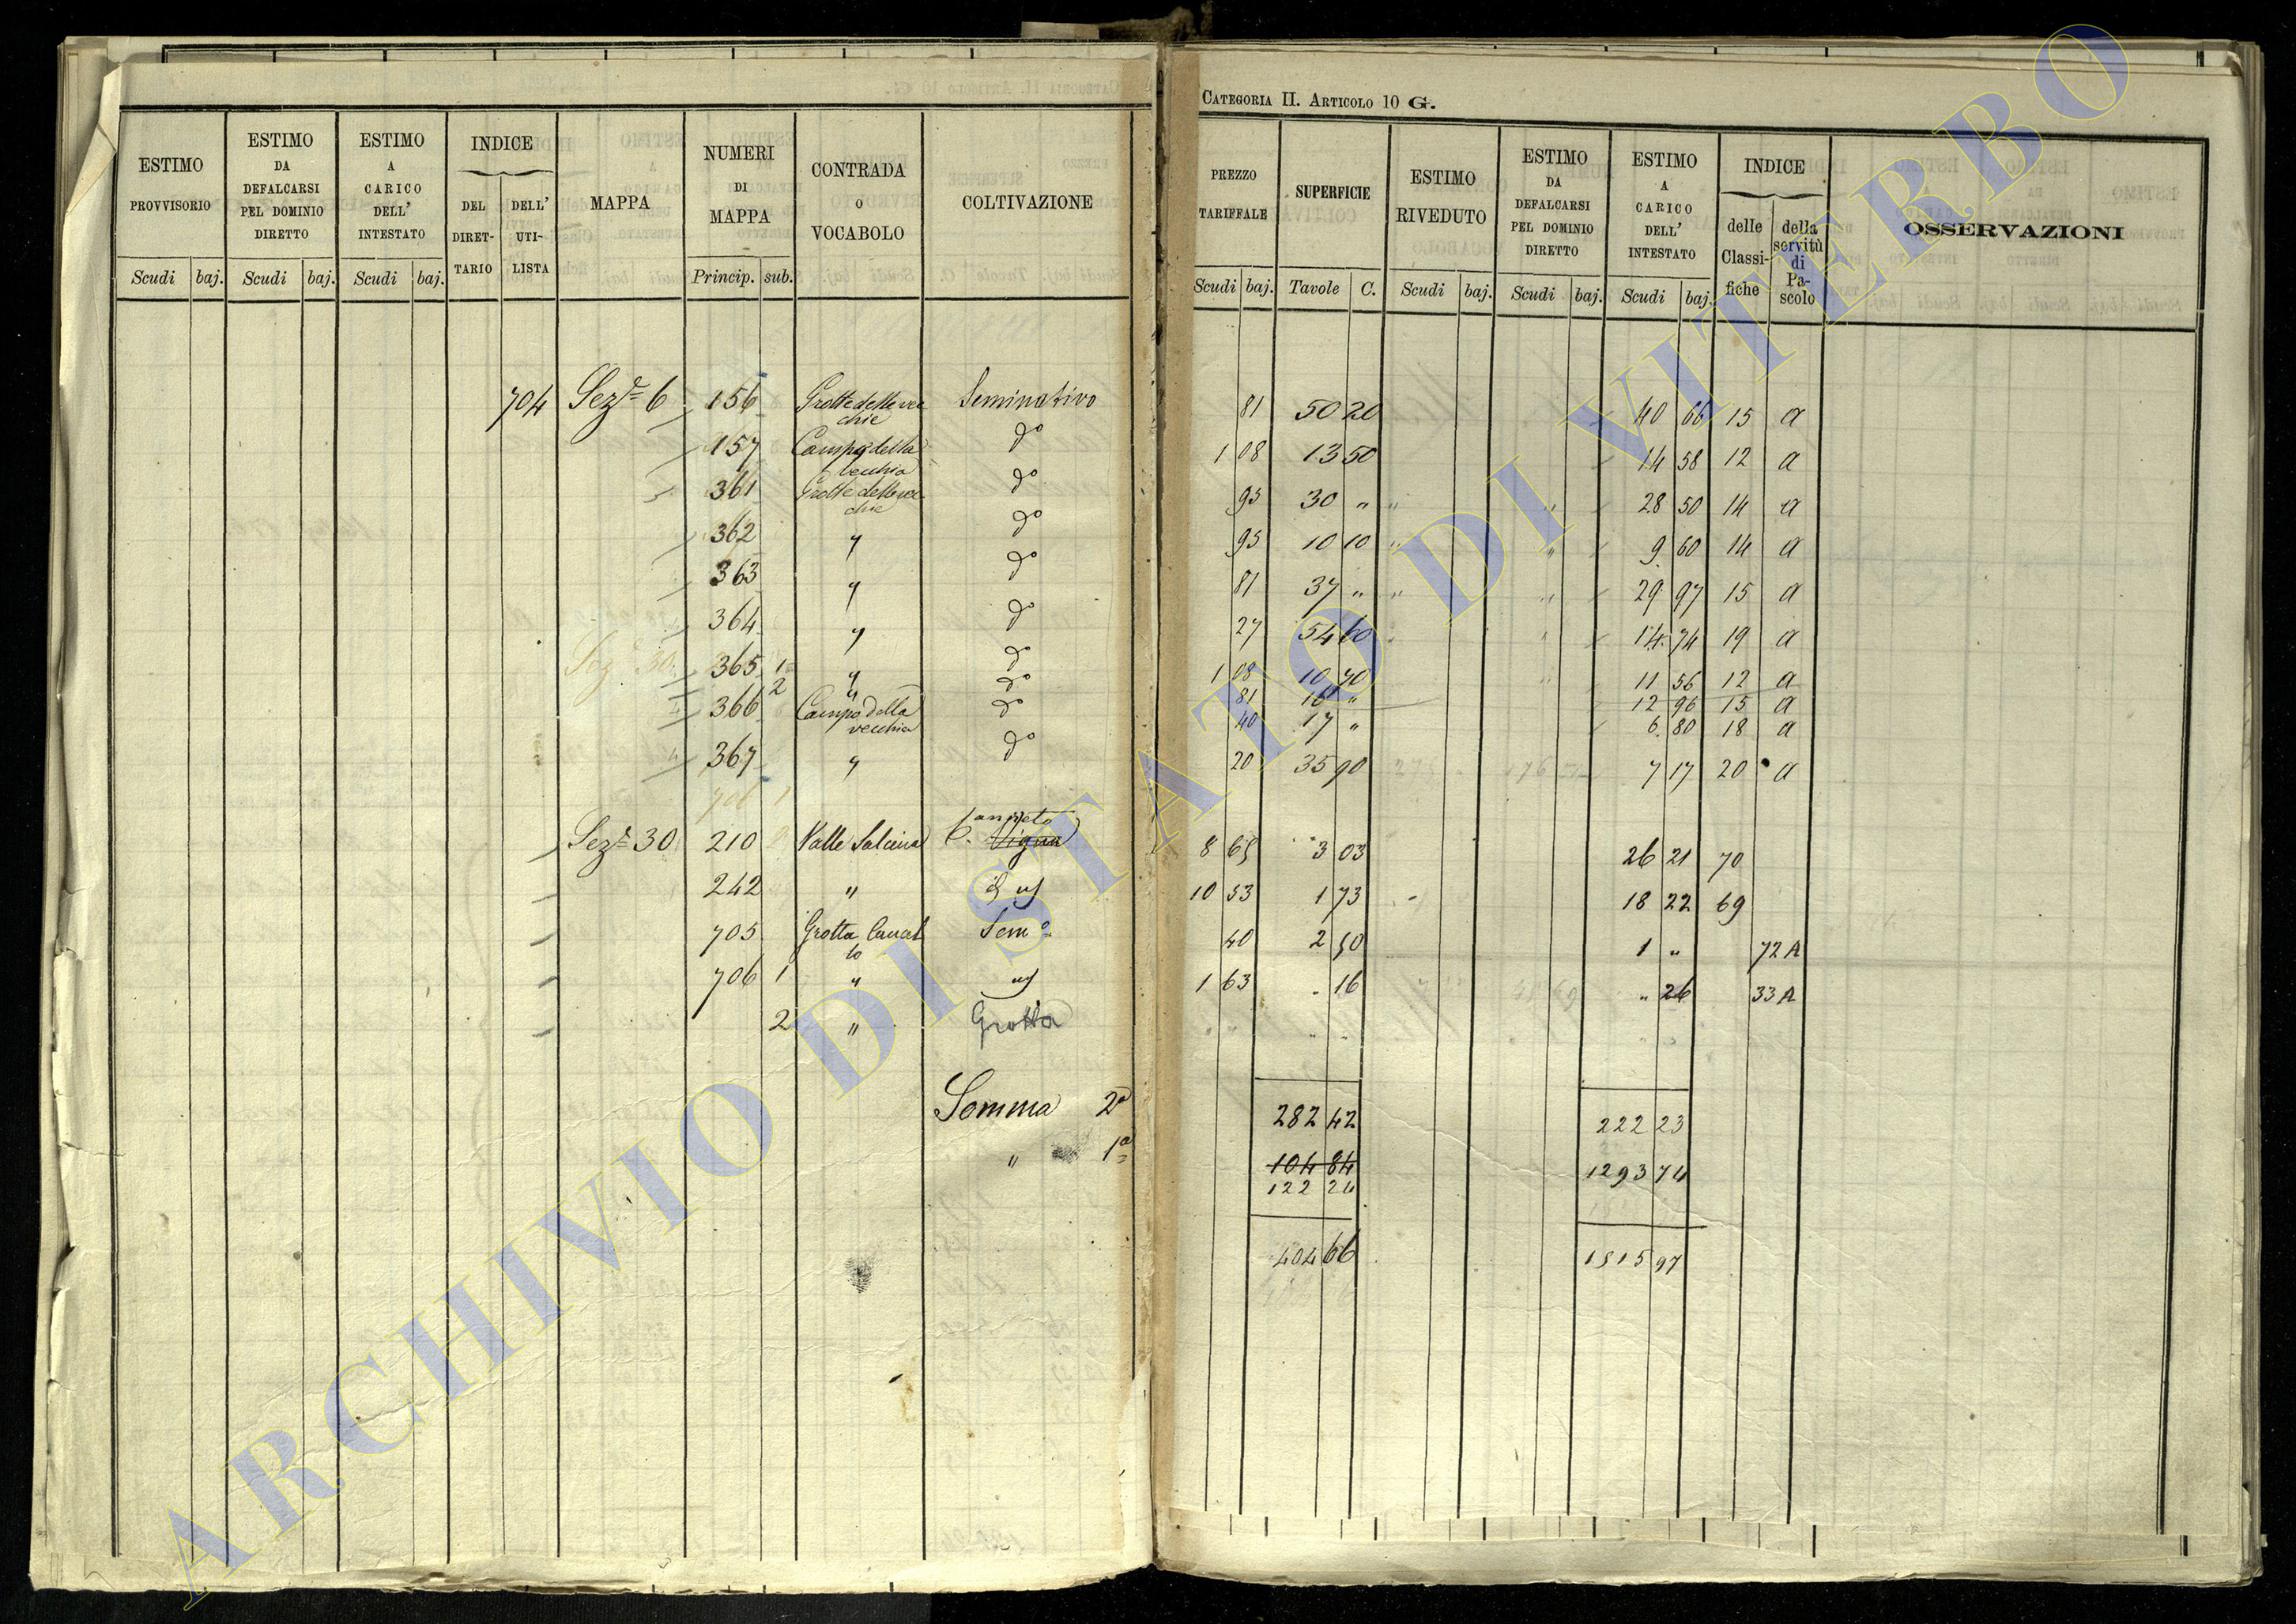 CATEGORIA II. ARTICOLO 10 G.
ESTIMO PROVVISORIO Scudi baj.
ESTIMO DA DEFALCARSI PEL DOMINIO DIRETTO Scudi baj.
ESTIMO A CARICO DELL' INTESTATO Scudi baj.
INDICE DEL DIRET-TARIO DELL' UTI-LISTA
MAPPA
NUMERI DI MAPPA Princip. sub.
CONTRADA O VOCABOLO
COLTIVAZIONE
PREZZO TARIFFALE Scudi baj.
SUPERFICIE Tavole C.
ESTIMO RIVEDUTO Scudi baj.
ESTIMO DA DEFALCARSI PEL DOMINIO DIRETTO Scudi baj.
ESTIMO A CARICO DELL' INTESTATO Scudi baj.
INDICE delle Classi-fiche della servitù di Pa-scolo
OSSERVAZIONI
704 Sez.e 6 156 Grotte delle vec chie Seminativo 81 50 20 40 66 15 a
157 Campo della vecchia do 1 08 13 50 14 58 12 a
361 Grotte delle vec chie do 95 30 " 28 50 14 a
362 " do 95 10 10 9 60 14 a
363 " do 81 37 " 29 97 15 a
364 " do 27 54 60 14 74 19 a
365 1 " do 1 08 10 70 11 56 12 a
2 " do 81 16 " 12 96 15 a
366 Campo della vecchia do 40 17 " 6 80 18 a
367 " do 20 35 90 7 17 20 a
706 1
Sez.e 30 210 Valle Salcina C. Vigna anneto 8 65 3 03 26 21 70
242 " 10 53 1 73 18 22 69
705 Grotta Cancel lo Sem.o 40 2 50 1 " 72 A
706 1 " 1 63 " 16 " 26 33 A
2 " Grotta " " " "
Somma 2a 282 42 222 23
" 1a 104 84 1293 74
122 24
404 66 1515 97
ARCHIVIO DI STATO DI VITERBO